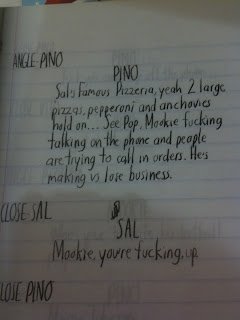 ANGLE PINO
PINO
Sal's Famous Pizzeria, yeah 2 large
pizzas, pepperoni and anchovies
hold on... See Pop, Mookie fucking
talking on the phone and people
are trying to call in orders. He's
making us lose business.
CLOSE SAL
SAL
Mookie, you're fucking up.
CLOSE PINO